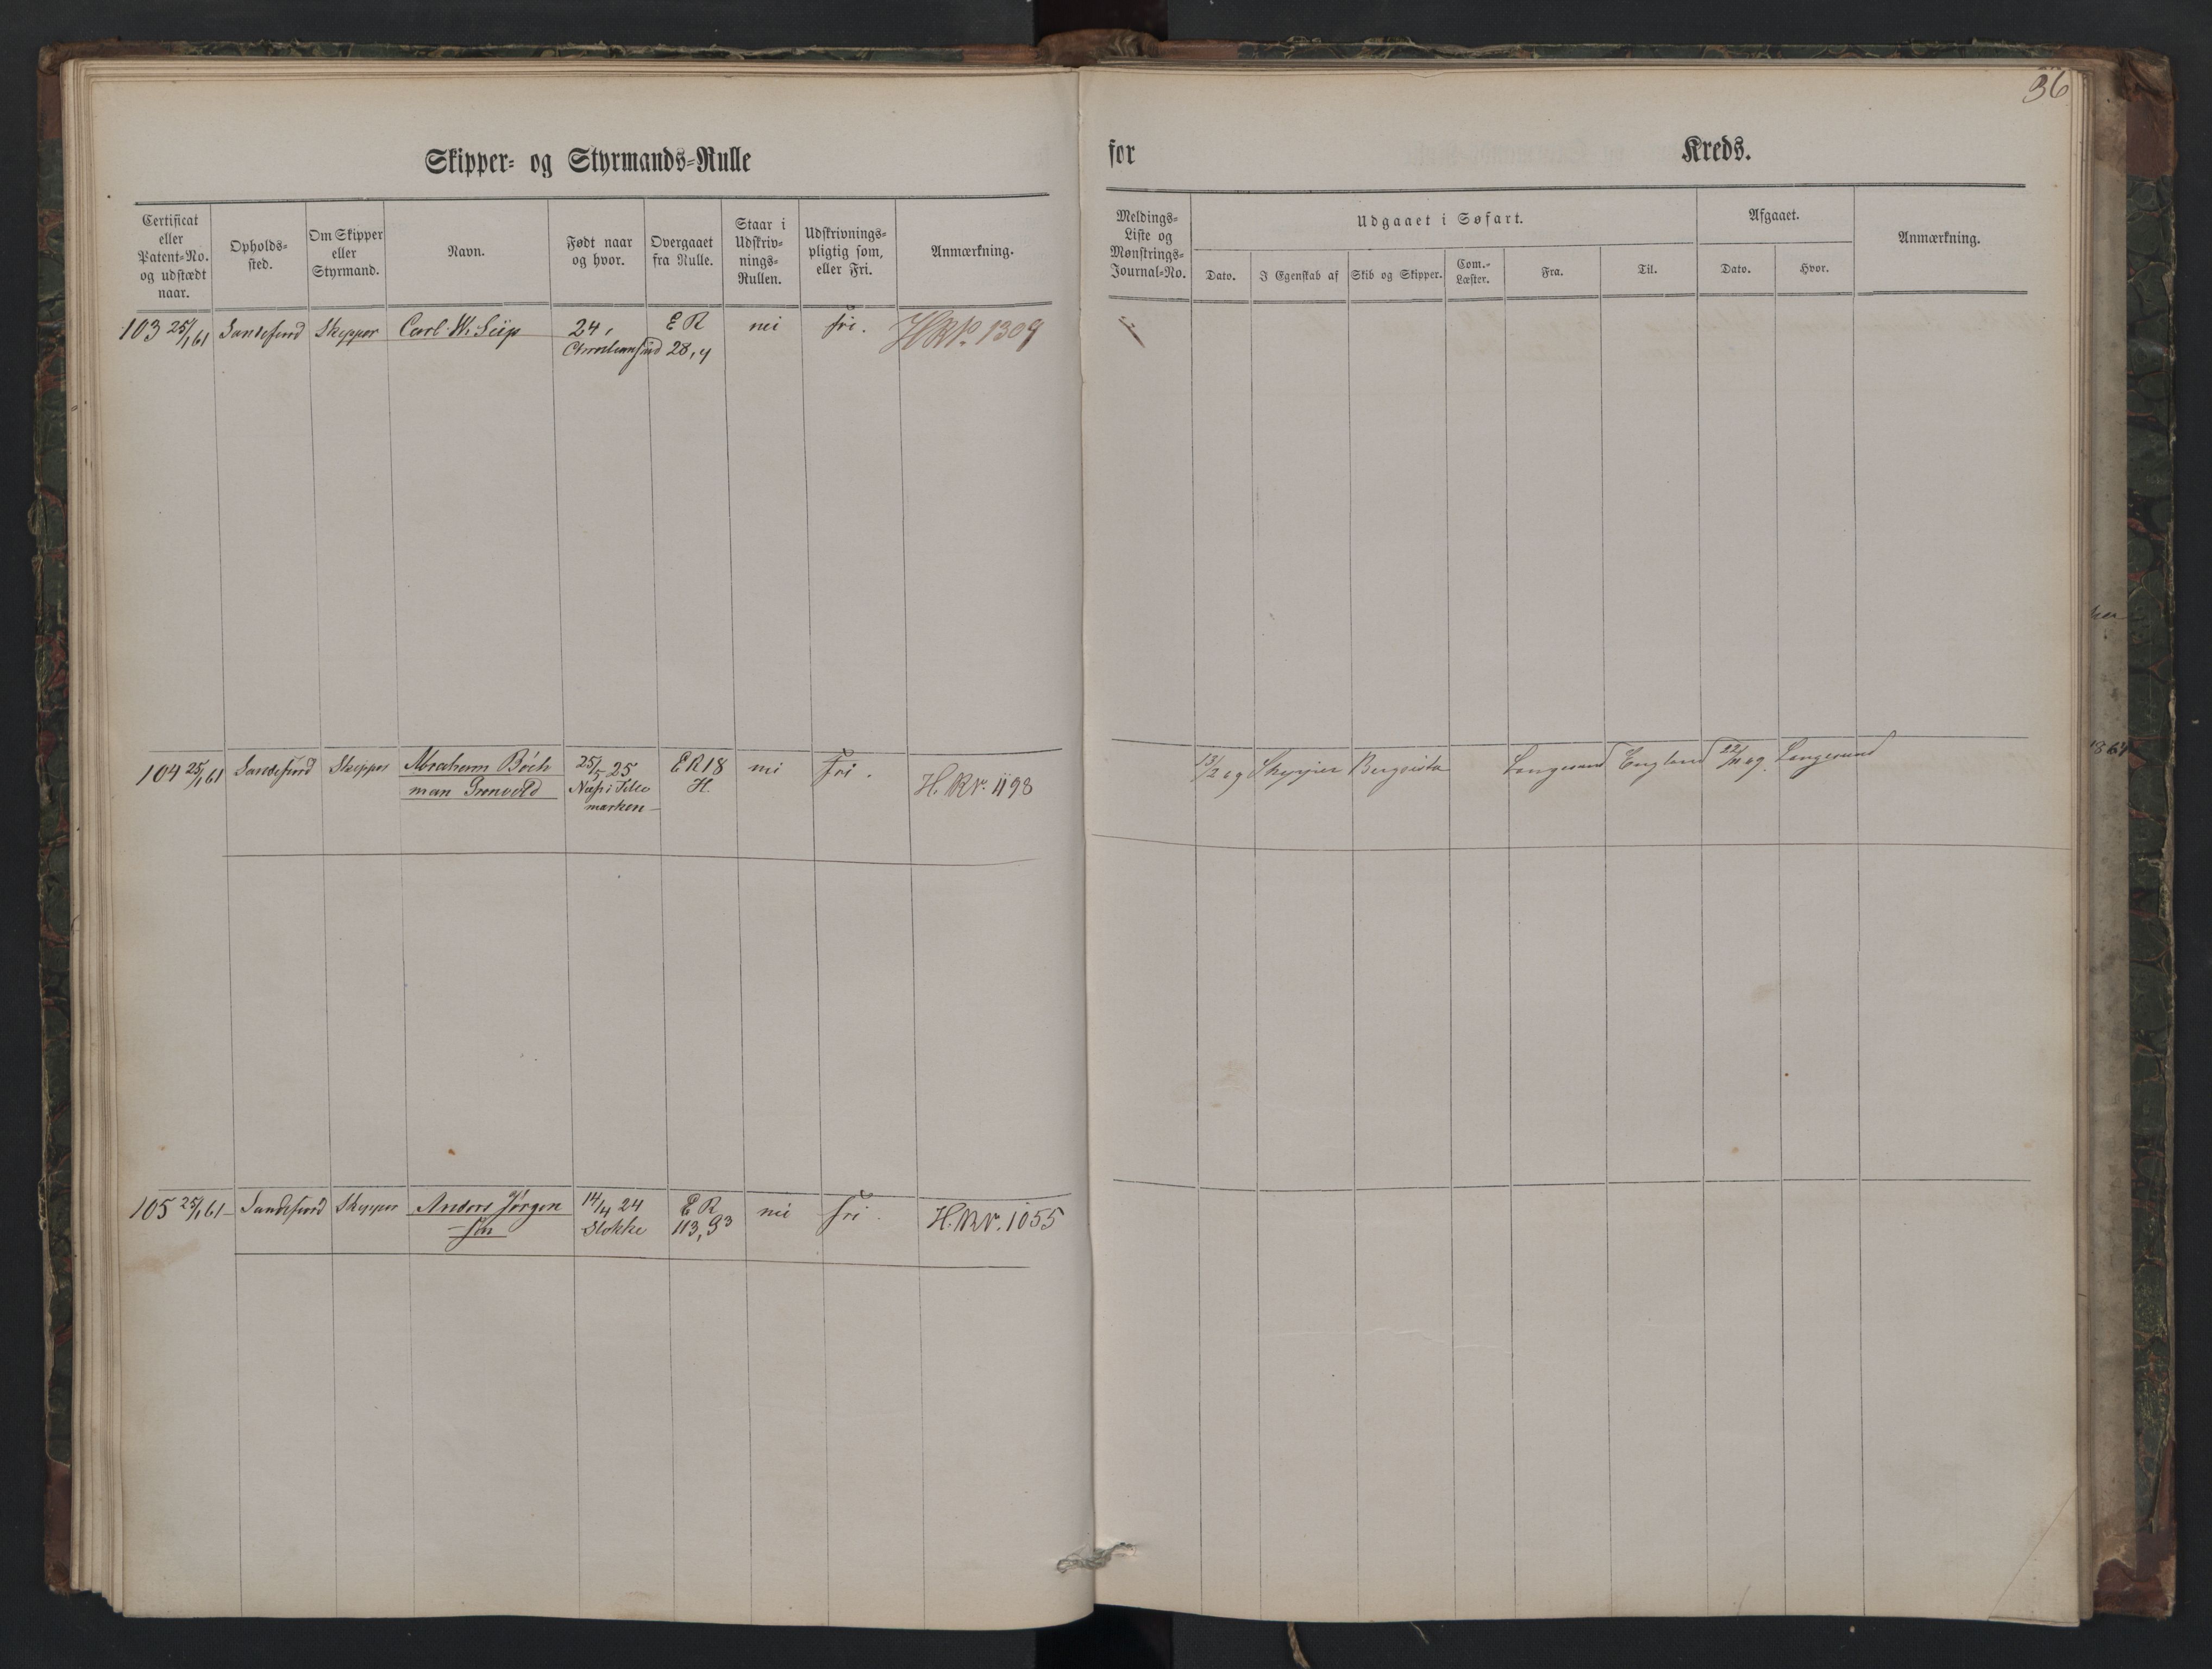 36
Skipper- og Styrmands-Rulle for Kreds.
Certificat eller Patent-No. og udstædt naar.
Opholds-sted.
Om Skipper eller Styrmand.
Navn.
Født naar og hvor.
Overgaaet fra Rulle.
Staar i Udskriv-nings-Rullen.
Udskrivnings-pligtig som, eller Fri.
Anmærkning.
Meldings-Liste og Mønstrings-Journal-No.
Udgaaet i Søfart.
Dato.
I Egenskab af
Skib og Skipper.
Com.-Læster.
Fra.
Til.
Afgaaet.
Dato.
Hvor.
Anmærkning.
103 25/1 61 Sandefjord Skipper Carl W. Siip 24, E R nei fri. HRNo. 1309
Christiansund 28,4
104 25/1 61 Sandefjord Skipper Abraham Böch 25/5 25 E R 18 nei Fri. H.RNr. 1198 13/2 69 Skipper Langesund England 22/11 69. Langesund
man Grønvold i Tele H.
marken
105 25/1 61 Sandefjord Skipper Anders Jørgen 14/4 24 E R nei Fri. H.RNr. 1055
sen Stokke 113,93